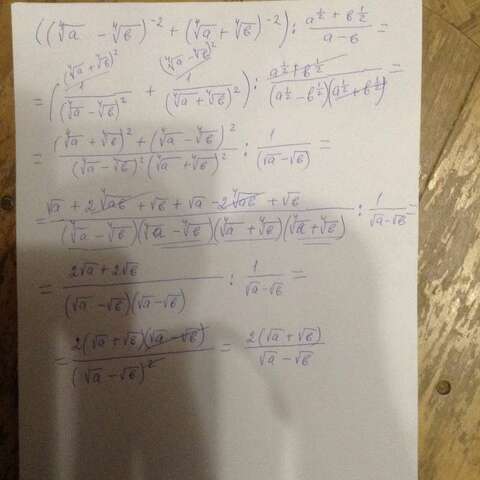 ((⁴√a - ⁴√b)⁻² + (⁴√a + ⁴√b)⁻²) : (a^(1/2) + b^(1/2))/(a - b) =
= ((⁴√a + ⁴√b)²/ 1/(⁴√a - ⁴√b)² + (⁴√a - ⁴√b)²/ 1/(⁴√a + ⁴√b)²) : (a^(1/2) + b^(1/2))/((a^(1/2) - b^(1/2))(a^(1/2) + b^(1/2))) =
= ((⁴√a + ⁴√b)² + (⁴√a - ⁴√b)²)/((⁴√a - ⁴√b)²(⁴√a + ⁴√b)²) : 1/(√a - √b) =
= (√a + 2⁴√ab + √b + √a - 2⁴√ab + √b)/((⁴√a - ⁴√b)(⁴√a - ⁴√b)(⁴√a + ⁴√b)(⁴√a + ⁴√b)) : 1/(√a - √b) =
= (2√a + 2√b)/((√a - √b)(√a - √b)) : 1/(√a - √b) =
= (2(√a + √b)(√a - √b))/(√a - √b)² = 2(√a + √b)/(√a - √b)